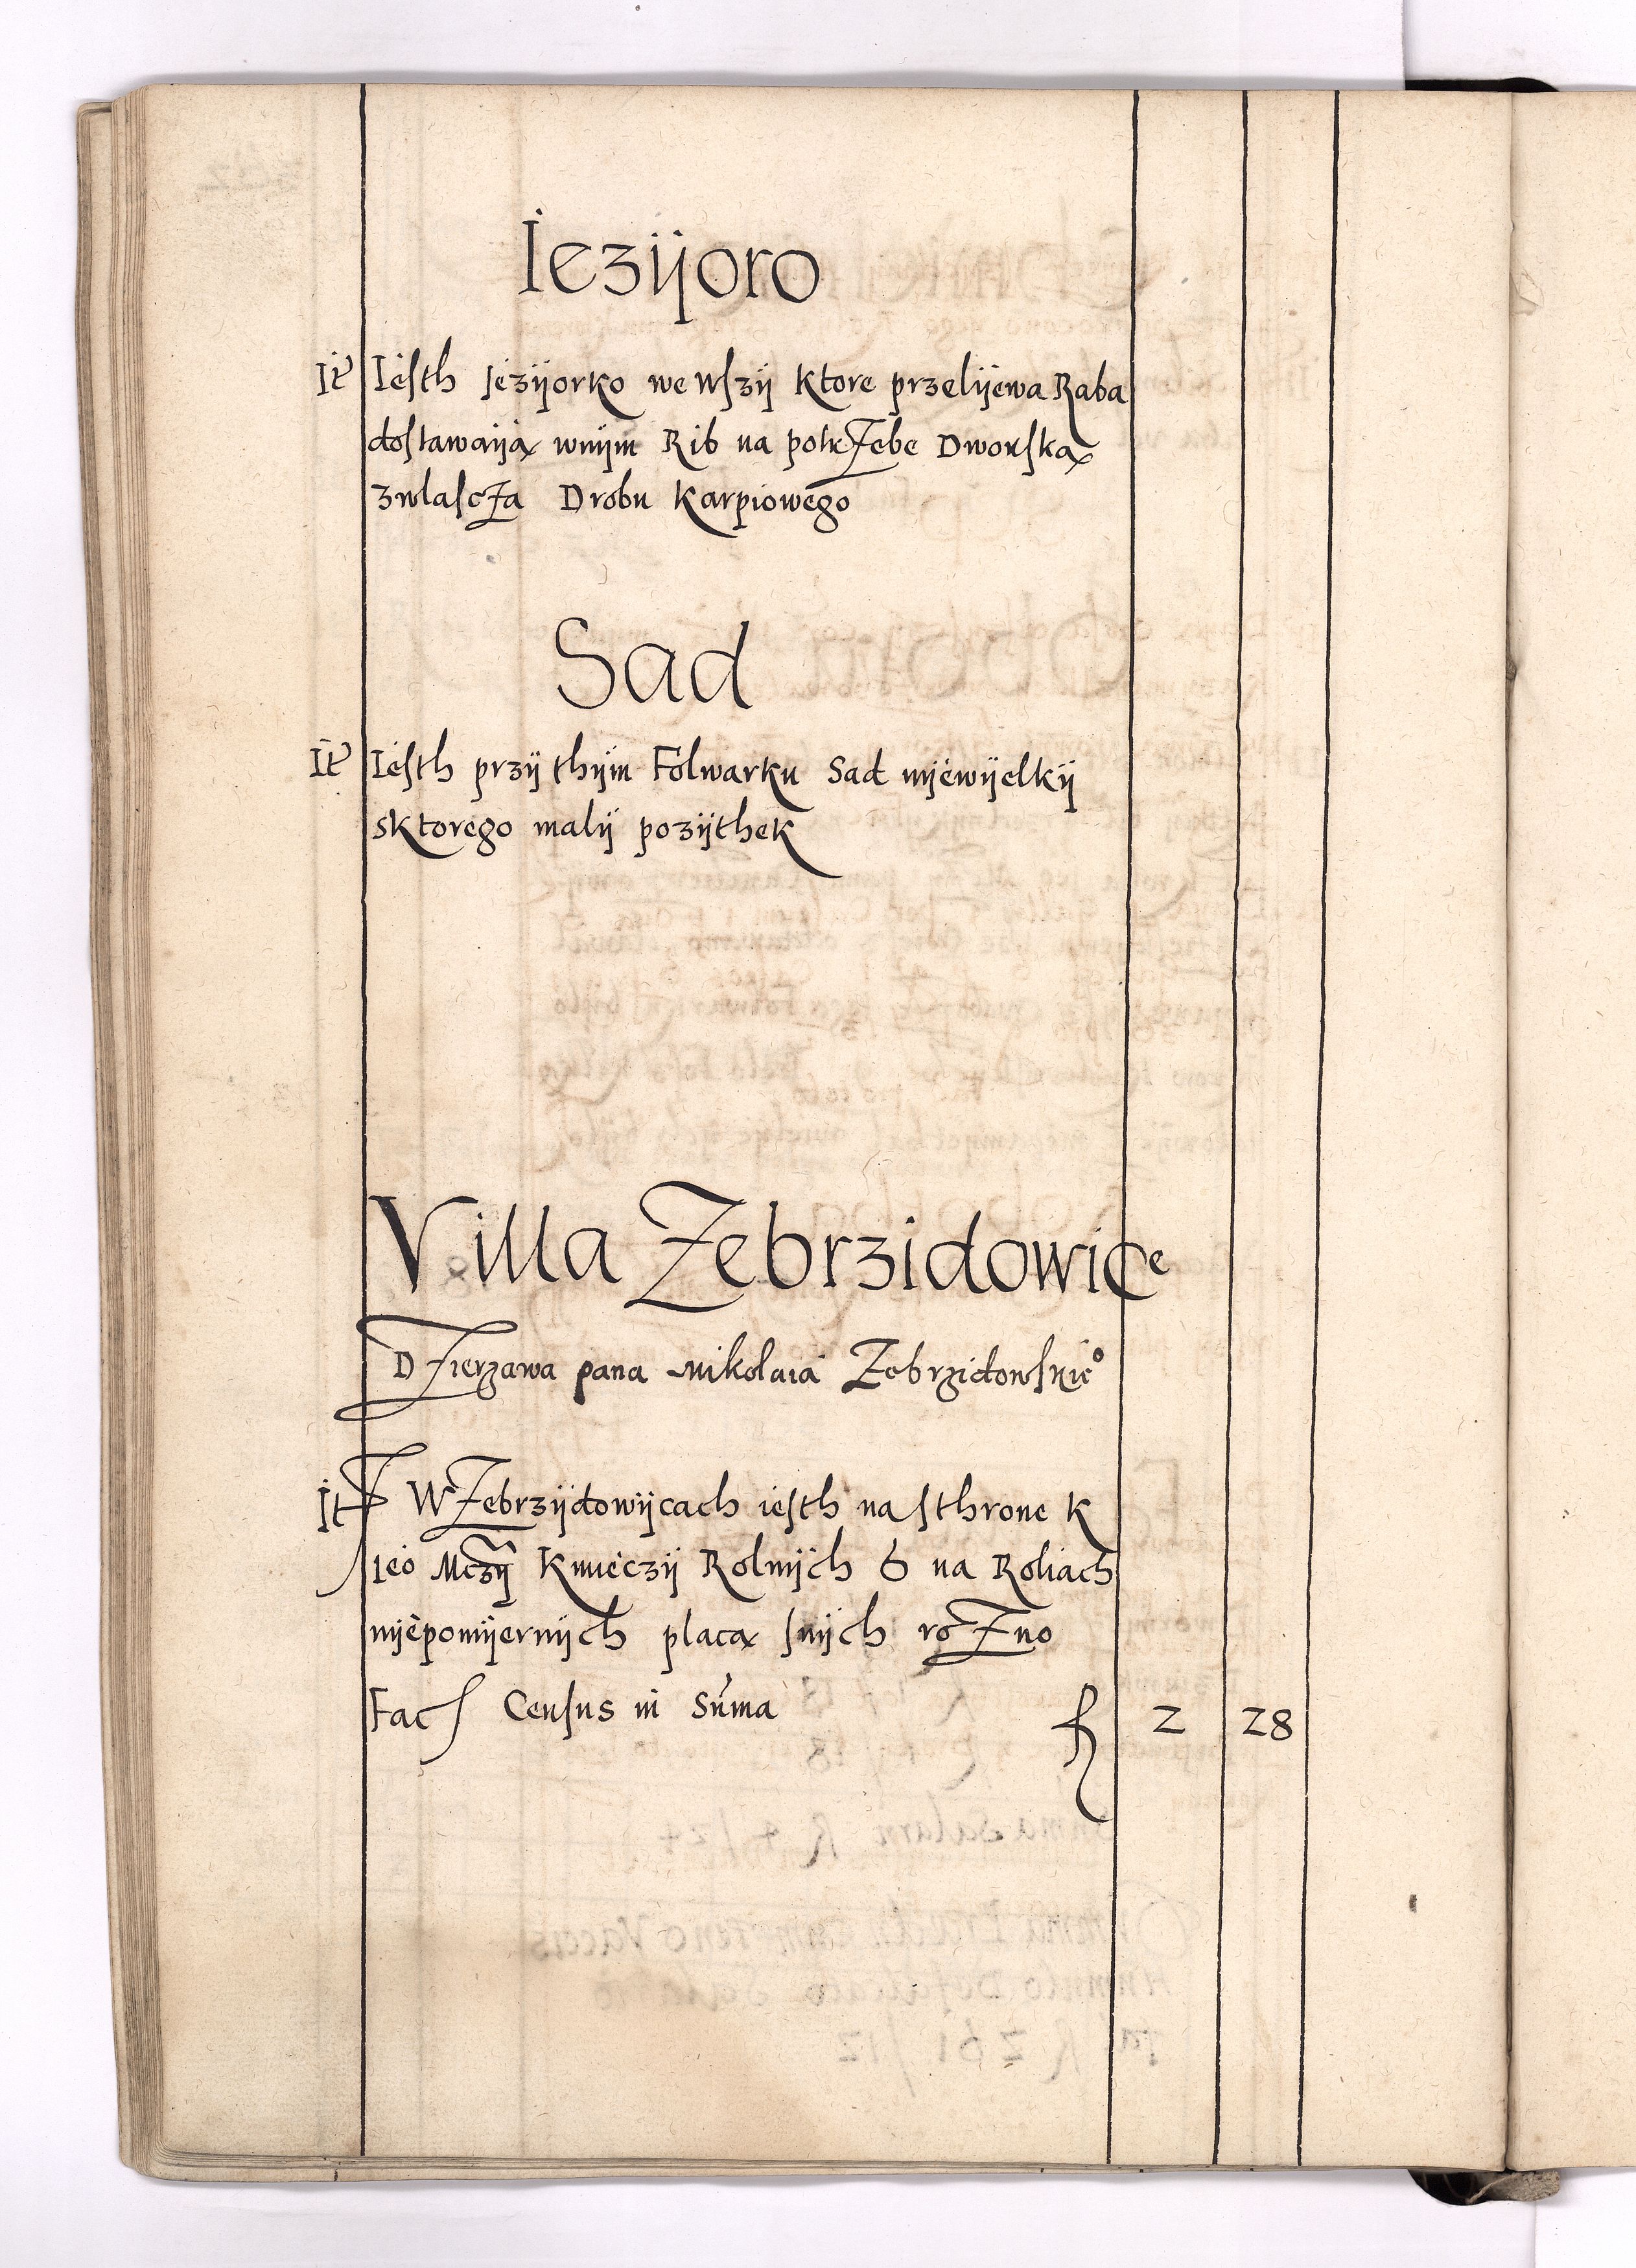 Iezijoro
It Iesth Iezijorko we wszij ktore przelijewa Raba
dostawaija wnijm Rib na potrzebe Dworska
zwlascza Drobu karpiowego
Sad
It Iesth przij thijm Folwarku Sad nijewijelkij
sktorego malij pozijthek
Villa Zebrzidowice
Dzierzawa pana Mikolaia Zebrzidowskie°
It W Zebrzijdowijcach iesth na sthrone K
ieo Mczij Kmieczij Rolnijch 6 na Roliach
nijepomijernijch placa snijch rozno
Fac Census in Suma f 2 28